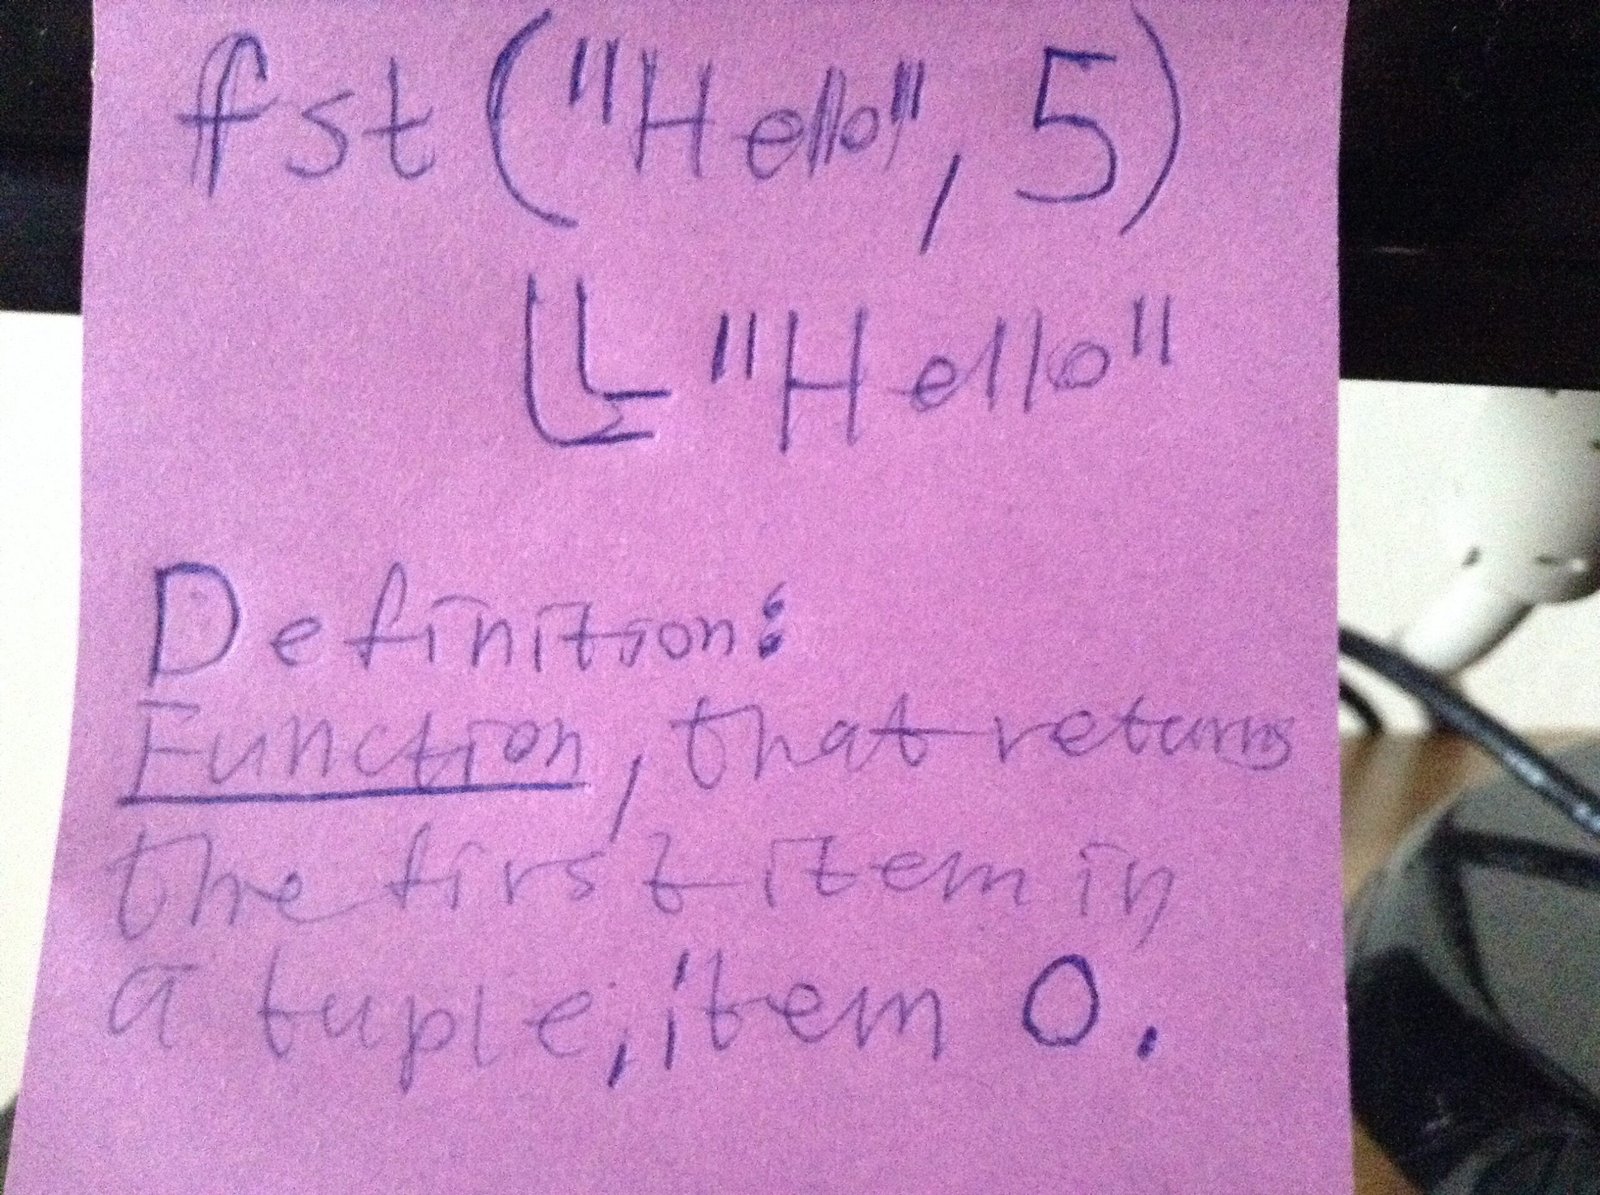 fst ("Hello", 5)
"Hello"
Definition:
Function, that returns
the first item in
a tuple, item 0.